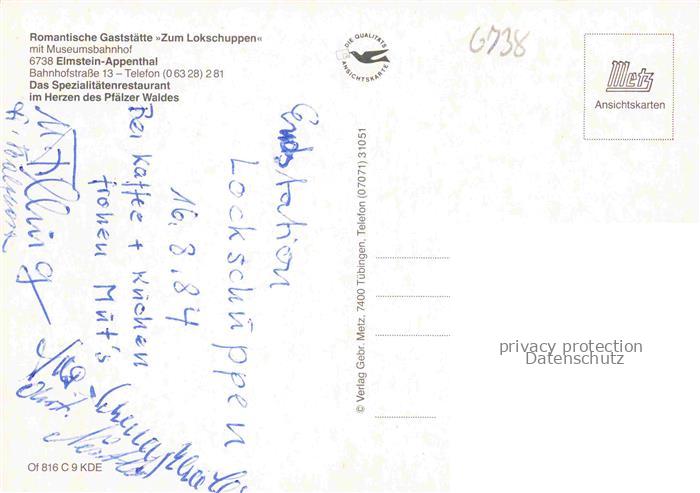 Romantische Gaststätte »Zum Lokschuppen«
mit Museumsbahnhof
6738 Elmstein-Appenthal
Bahnhofstraße 13 – Telefon (0 63 28) 2 81
Das Spezialitätenrestaurant
im Herzen des Pfälzer Waldes
DIE QUALITÄTS
ANSICHTSKARTE
6738
Metz
Ansichtskarten
Endstation
Lockschuppen
16.8.84
Bei Kaffee + Kuchen
frohen Mut's
© Verlag Gebr. Metz, 7400 Tübingen, Telefon (07071) 31051
privacy protection
Datenschutz
Of 816 C 9 KDE